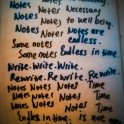 Notes Notes Notes
Notes Notes Necessary
Notes to well being.
Notes Notes are
Some notes endless.
Some notes Endless in time.
Write. Write. Write.
Rewrite. Rewrite. Rewrite.
Notes Notes Notes Time
Notes Notes Notes Time
Notes Notes Time
Endless in time. is not